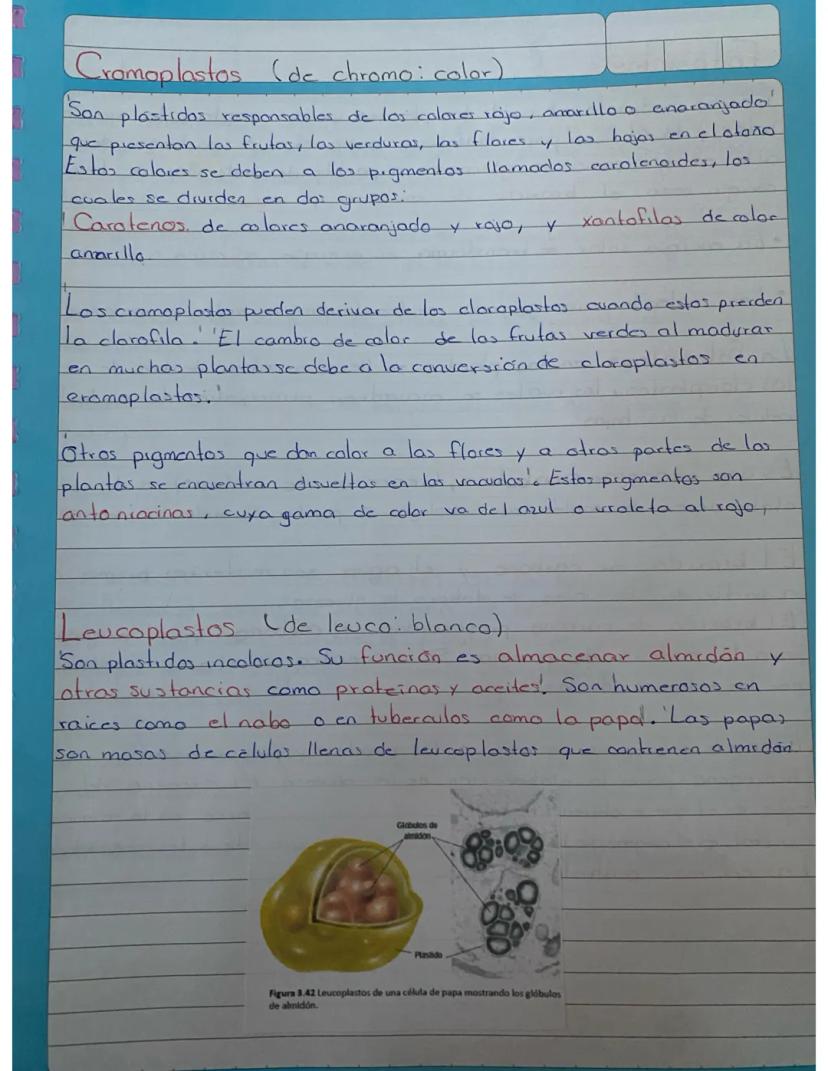 Cromoplastos (de chromo: color)
'Son plástidos responsables de los colores rojo, amarillo o anaranjado'
que presentan las frutas, las verduras, las flores y las hojas en el otoño
Estos colores se deben a los pigmentos llamados carotenoides, los
cuales se dividen en dos grupos:
'Carotenos, de colores anaranjado y rojo, y xantofilas de color
amarillo
Los cromoplastos pueden derivar de los cloroplastos cuando estos pierden
la clorofila.' 'El cambio de color de las frutas verdes al madurar
en muchas plantas se debe a la conversión de cloroplastos en
cromoplastos.'
Otros pigmentos que dan color a las flores y a otras partes de las
plantas se encuentran disueltas en las vacuolas'. Estos pigmentos son
antoniacinas, cuya gama de color va del azul o violeta al rojo,
Leucoplastos (de leuco: blanco)
'Son plastidos incoloros. Su función es almacenar almidón y
otras sustancias como proteinas y aceites'. Son numerosos en
raices como el nabo o en tuberculos como la papa'. 'Las papas
son masas de celulas llenas de leucoplastos que contienen almidón
Glóbulos de
almidón
Plastido
Figura 3.42 Leucoplastos de una célula de papa mostrando los glóbulos
de almidón.